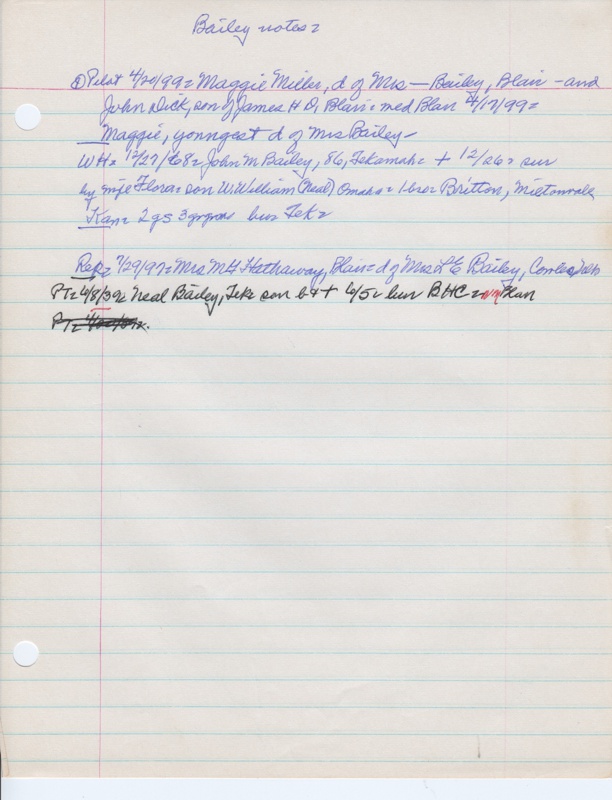 Bailey notes =
① Pilot 4/20/99 = Maggie Miller, d of Mrs — Bailey, Blair - and
John Dick, son of James H D, Blair = med Blair 4/17/99 =
Maggie, youngest d of Mrs Bailey -
WH = 12/27/68 = John M Bailey, 86, Tekamah = + 12/26 = sur
by wife Flora = son W. William (Neal) Omaha = 1 bro = Britton, Miltonvale
Kan = 2 gs 3 grgrns bur Tek =
Rep = 7/29/97 = Mrs M H Hathaway, Blair = d of Mrs L E Bailey, Cowles, Neb
PT = 6/8/39 = Neal Bailey, Tek = son b + + 6/5 = bur BHC = Blair
PT =